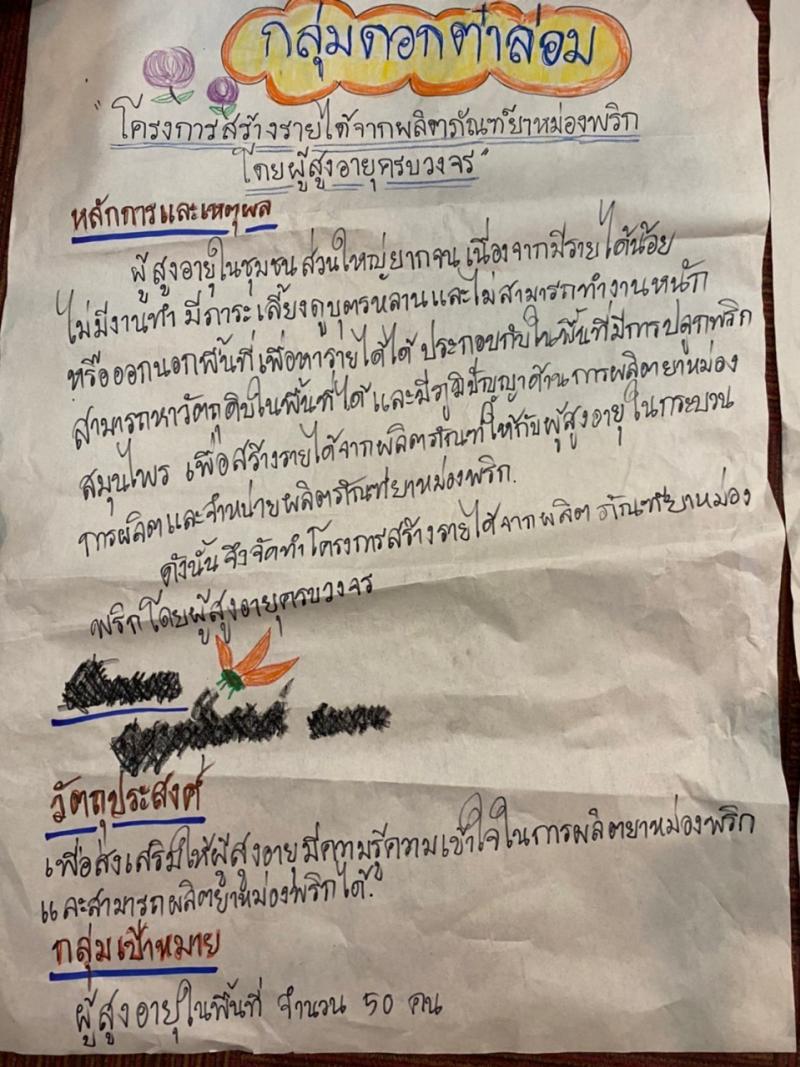 กลุ่มดอกต่าล่อม
"โครงการสร้างรายได้จากผลิตภัณฑ์ยาหม่องพริก
โดยผู้สูงอายุครบวงจร"
หลักการและเหตุผล
ผู้สูงอายุในชุมชนส่วนใหญ่ยากจน เนื่องจากมีรายได้น้อย
ไม่มีงานทำ มีภาระเลี้ยงดูบุตรหลานและไม่สามารถทำงานหนัก
หรือออกนอกพื้นที่เพื่อหารายได้ได้ ประกอบกับในพื้นที่มีการปลูกพริก
สามารถหาวัตถุดิบในพื้นที่ได้และมีภูมิปัญญาด้านการผลิตยาหม่อง
สมุนไพร เพื่อสร้างรายได้จากผลิตภัณฑ์ให้กับผู้สูงอายุในกระบวน
การผลิตและจำหน่ายผลิตภัณฑ์ยาหม่องพริก.
ดังนั้นจึงจัดทำโครงการสร้างรายได้จากผลิตภัณฑ์ยาหม่อง
พริกโดยผู้สูงอายุครบวงจร
วัตถุประสงค์
เพื่อส่งเสริมให้ผู้สูงอายุมีความรู้ความเข้าใจในการผลิตยาหม่องพริก
และสามารถผลิตยาหม่องพริกได้.
กลุ่มเป้าหมาย
ผู้สูงอายุในพื้นที่ จำนวน 50 คน